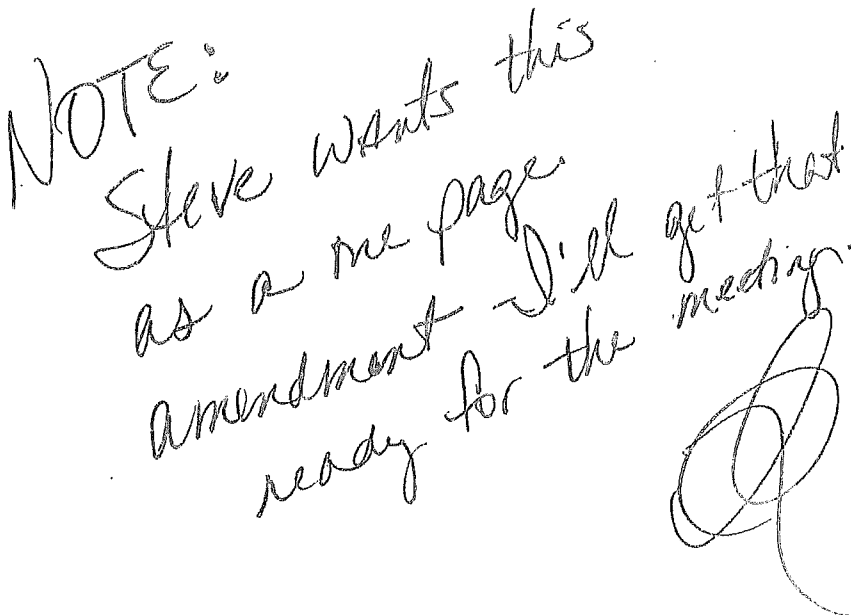 NOTE:
Steve wants this
as a one page
amendment - I'll get that
ready for the meeting.